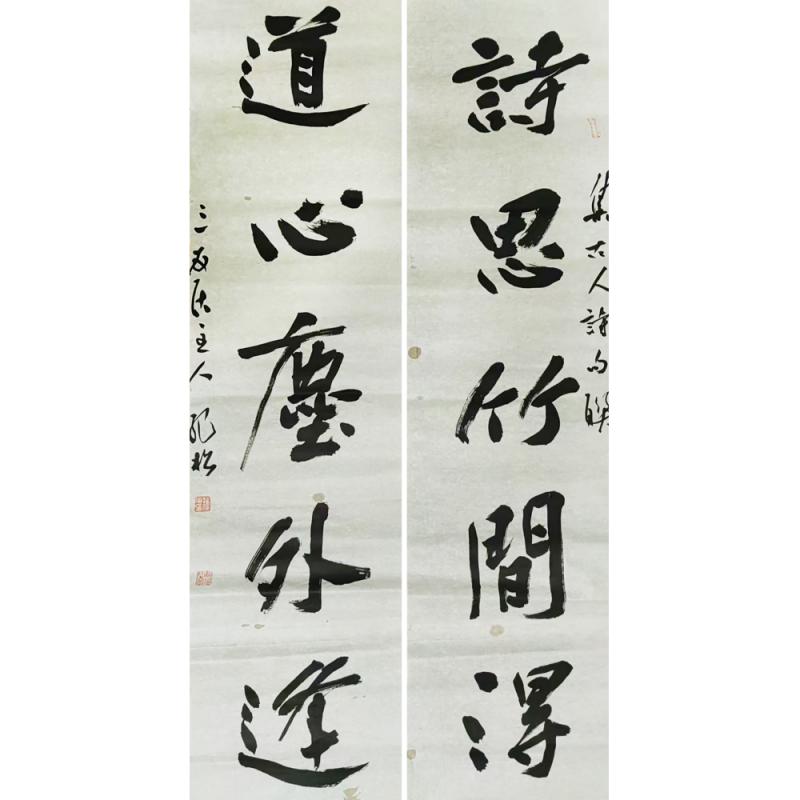 集古人詩句聯
詩思竹間得
道心塵外逢
三友居主人